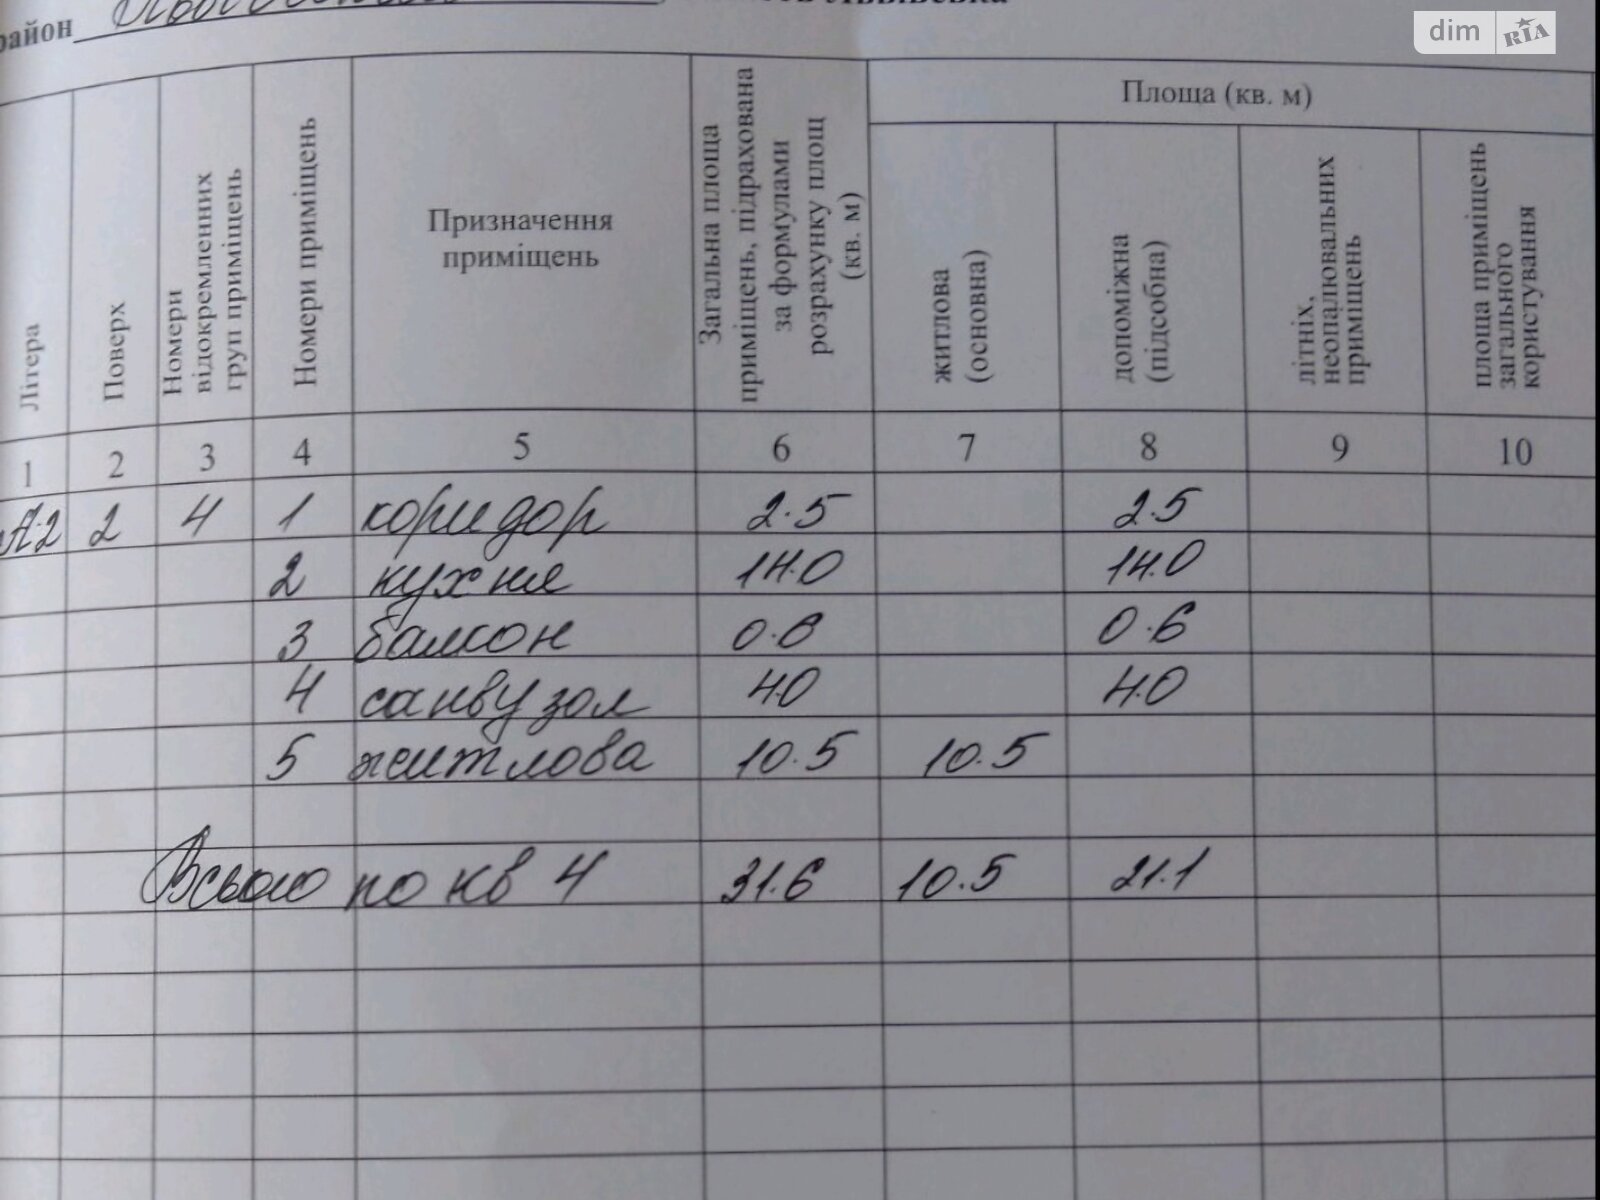 район
dim RIA
Літера
Поверх
Номери відокремленних груп приміщень
Номери приміщень
Призначення приміщень
Загальна площа приміщень, підрахована за формулами розрахунку площ (кв. м)
Площа (кв. м)
житлова (основна)
допоміжна (підсобна)
літніх, неопалювальних приміщень
площа приміщень загального користування
1 2 3 4 5 6 7 8 9 10
А-2 2 4 1 коридор 2.5 2.5
2 кухня 14.0 14.0
3 балкон 0.6 0.6
4 санвузол 4.0 4.0
5 житлова 10.5 10.5
Всього по кв 4 31.6 10.5 21.1